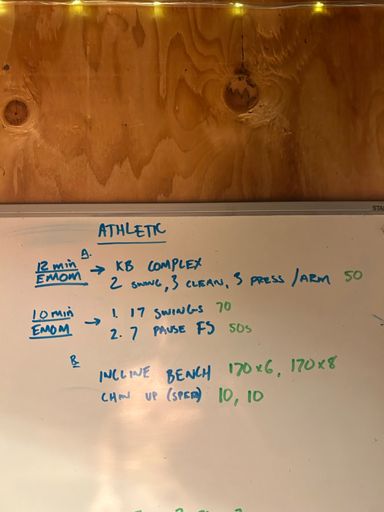 ATHLETIC
A.
12 min EMOM → KB COMPLEX
2 SWING, 3 CLEAN, 3 PRESS / ARM 50
10 min EMOM → 1. 17 SWINGS 70
2. 7 PAUSE FS 50s
B
INCLINE BENCH 170x6, 170x8
CHIN UP (SPEED) 10, 10